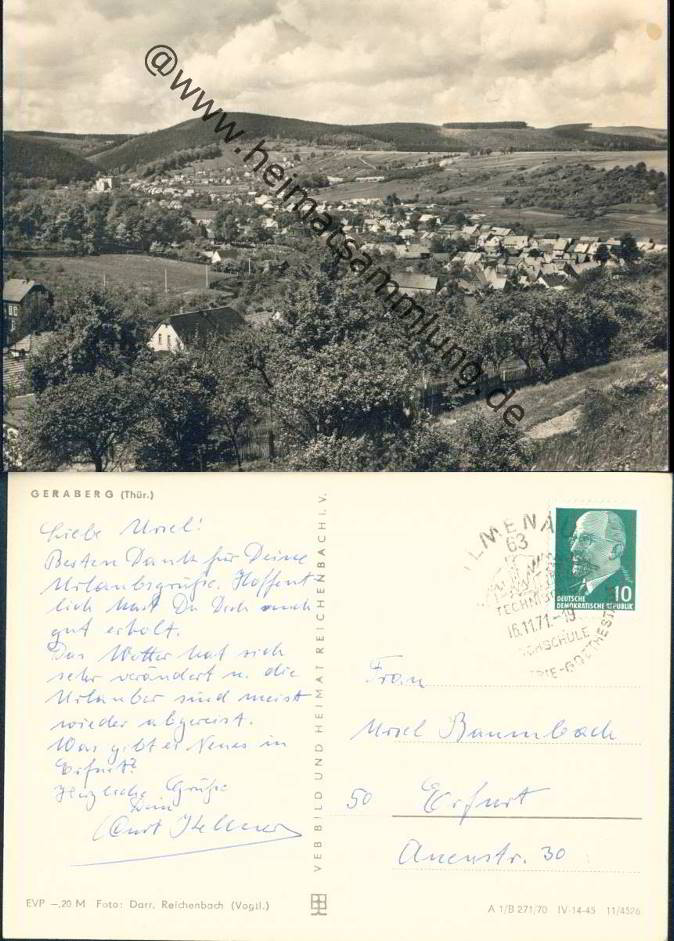 @www.heimatsammlung.de
GERABERG (Thür.)
Liebe Ursel!
Besten Dank für Deine
Urlaubsgrüße. Hoffent
lich hast Du Dich auch
gut erholt.
Das Wetter hat sich
sehr verändert u. die
Urlauber sind meist
wieder abgereist.
Was gibt er Neues in
Erfurt?
Herzliche Grüße
Dein
Kurt Kellner
EVP –,20 M Foto: Darr, Reichenbach (Vogtl.)
VEB BILD UND HEIMAT REICHENBACH I. V.
ILMENAU
63
TECHNIS
16.11.71.-19
CHSCHULE
GOETHESTA
10
DEUTSCHE
DEMOKRATISCHE REPUBLIK
Frau
Ursel Baumbach
50 Erfurt
Auenstr. 30
A 1/B 271/70 IV-14-45 11/4526